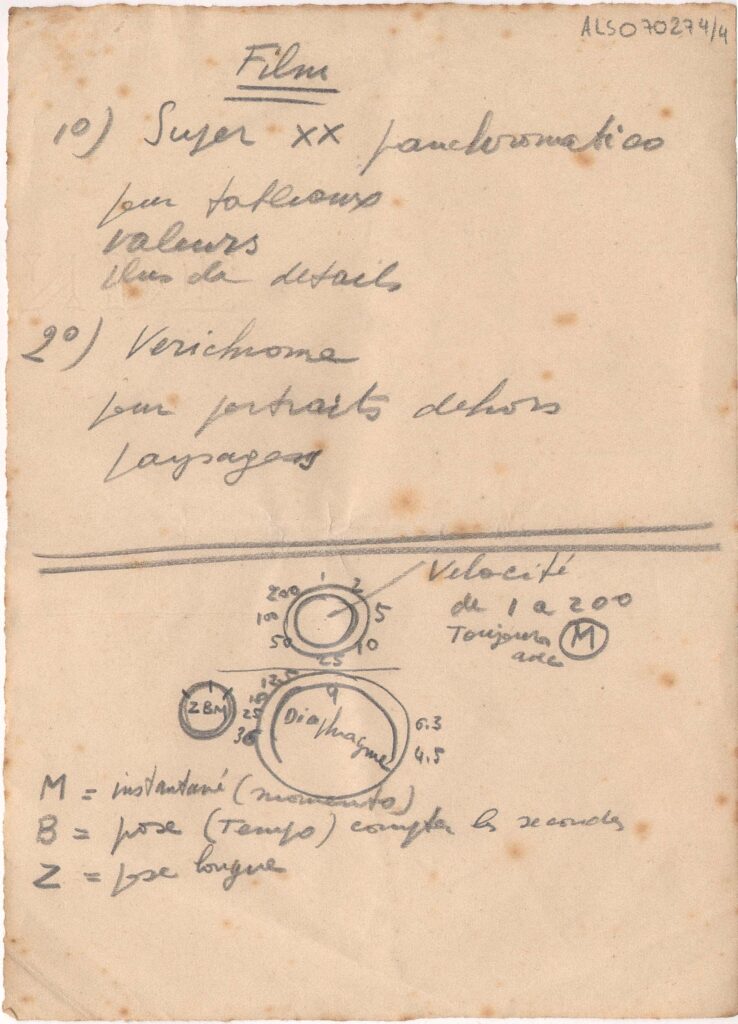 ALSO70274/4
Film
1o) Super XX panchromatico
pour tableaux
valeurs
plus de details
2o) Verichrome
pour portraits dehors
paysages
Velocité
de 1 a 200
Toujours
avec M
200 1 2
100 5
50 10
25
12.5 9
18
25
36
6.3
4.5
Z B M
Diaphragme
M = instantané (momento)
B = pose (Tempo) compter les secondes
Z = pose longue